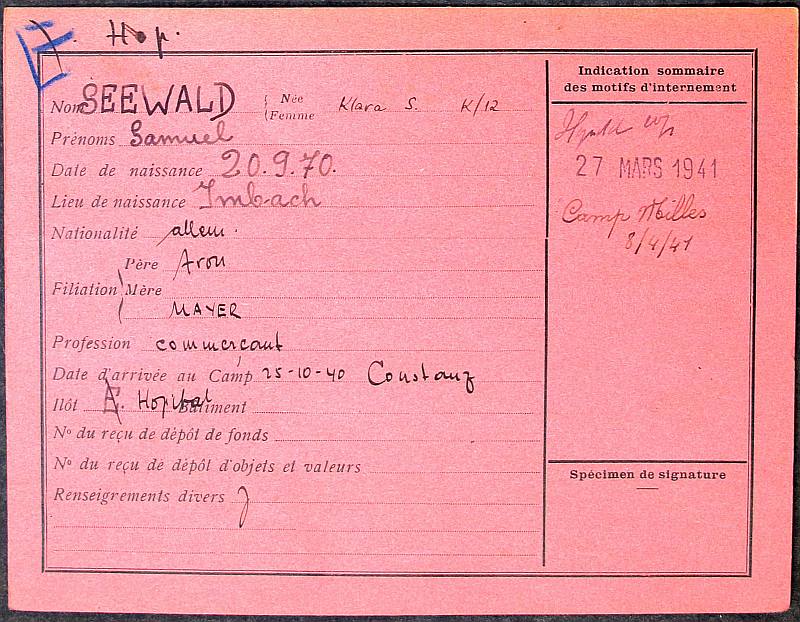 Hop.
Nom SEEWALD { Née Femme Klara S. K/12
Prénoms Samuel
Date de naissance 20.9.70.
Lieu de naissance Imbach
Nationalité allem.
Père Aron
Filiation Mère
MAYER
Profession commercant
Date d'arrivée au Camp 25-10-40 Constanz
Ilôt E. Hopital Bâtiment
Nº du reçu de dépôt de fonds
Nº du reçu de dépôt d'objets et valeurs
Renseigrements divers J
Indication sommaire
des motifs d'internement
27 MARS 1941
Camp Milles
8/4/41
Spécimen de signature